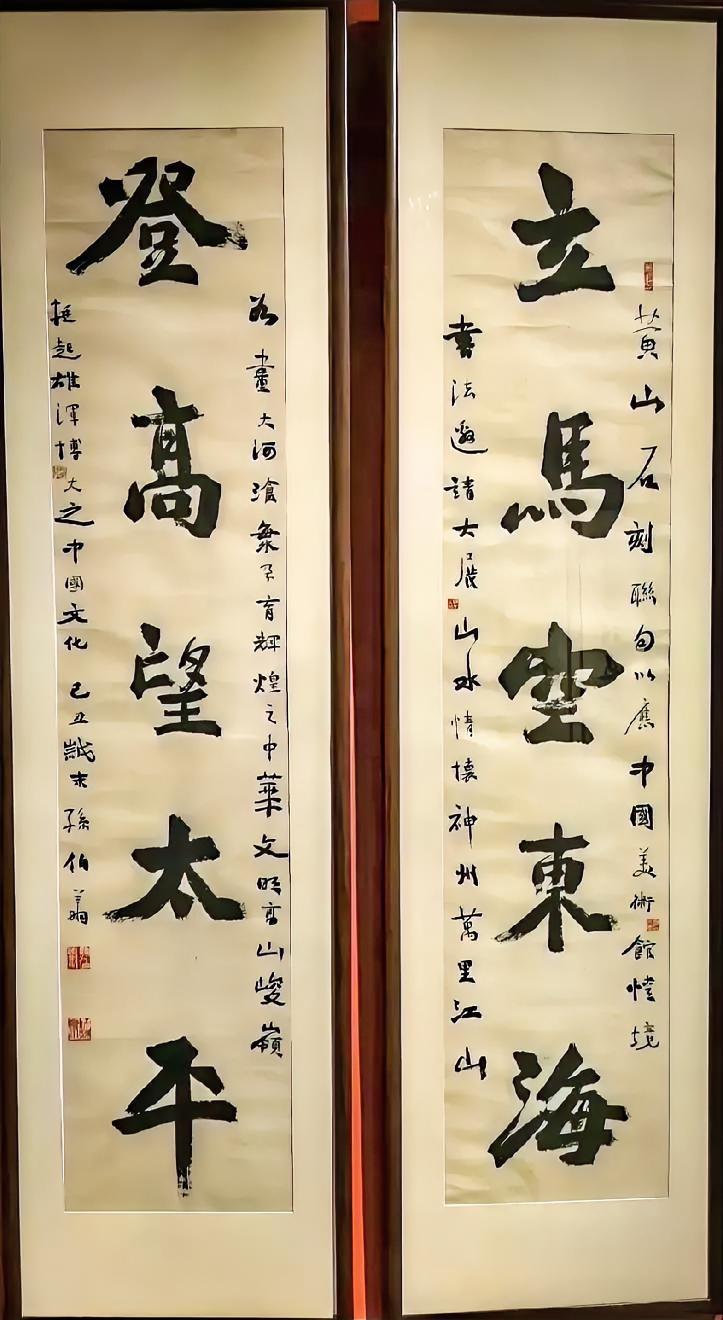 黄山石刻聯句以應中國美術館境
立馬空東海
書法邀請大展山水情懷神州萬里江山
如畫大河滄桑孕育輝煌之中華文明高山峻嶺
登高望太平
挺起雄渾博大之中國文化 己丑歲末 孫伯翔